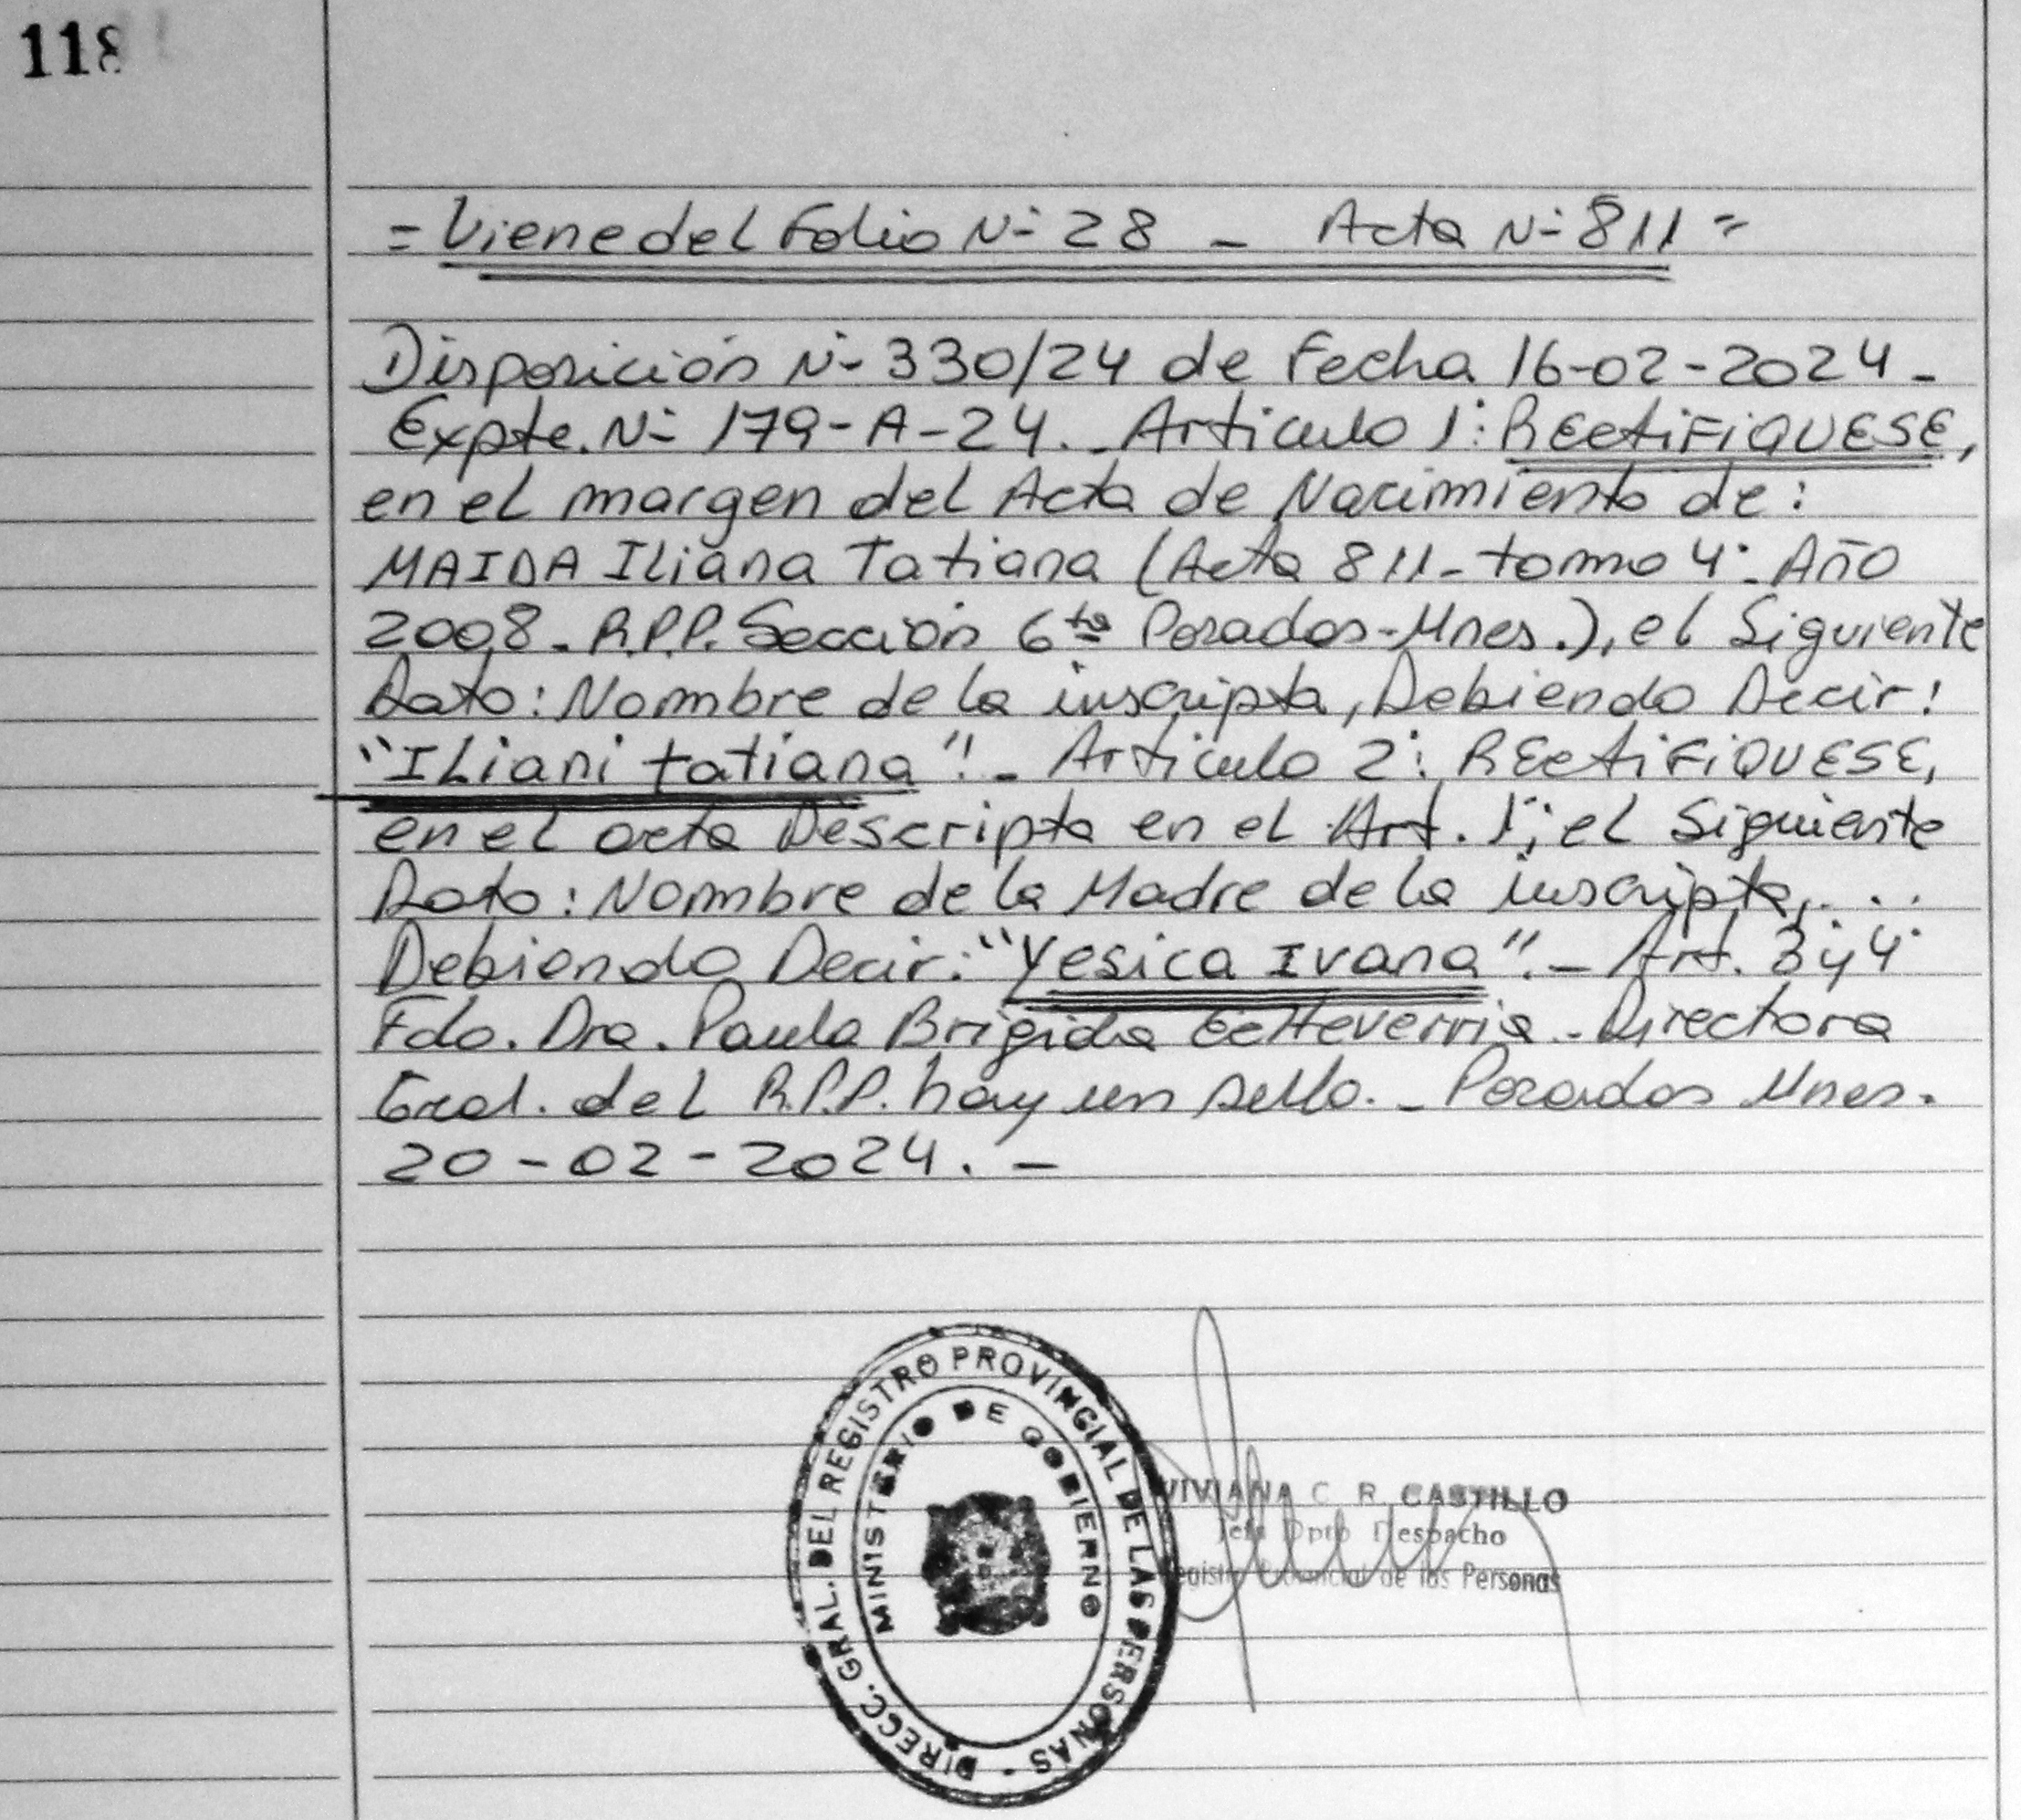 118
= Viene del Folio N- 28 - Acta N- 811 =
Disposición N- 330/24 de Fecha 16-02-2024-
Expte. N- 179-A-24. - Articulo 1: RECtiFIQUESE,
en el margen del Acta de Nacimiento de:
MAIDA Iliana Tatiana (Acta 811- tomo 4° Año
2008- R.P.P. Sección 6ta Posadas-Mnes.), el Siguiente
Dato: Nombre de la inscripta, Debiendo Decir:
"Iliani tatiana".- Articulo 2: RECtiFIQUESE,
en el acta Descripta en el Art. 1; el Siguiente
Dato: Nombre de la Madre de la inscripta,...
Debiendo Decir: "Yesica Ivana".- Art. 3 y 4°
Fdo. Dra. Paula Brigida Echeverria - Directora
Gral. del R.P.P. hay un sello. - Posadas Mnes.
20-02-2024. -
DIRECC. GRAL. DEL REGISTRO PROVINCIAL DE LAS PERSONAS -
MINISTERIO DE GOBIERNO
VIVIANA C. R. CASTILLO
Jefa Dpto Despacho
Registro Provincial de las Personas